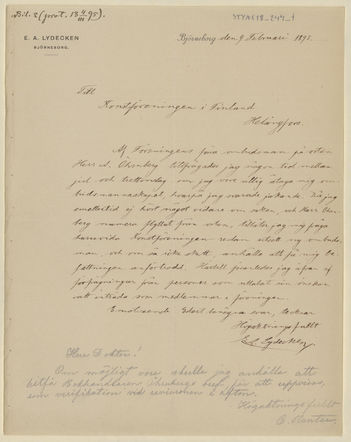 Bil. 2 (prot. 13 4/III 95).
STYAK18_244_1
E. A. LYDECKEN
BJÖRNEBORG.
Björneborg den 9 Februari 1895.
Till
Konstföreningen i Finland
Helsingfors.
Af Föreningens förra ombudsman på orten
Herr A. Öhrnberg tillfrågades jag någon tid mellan
jul och trettondag om jag vore villig åtaga mig om-
budsmannaskapet hvarpå jag svarade jakande. Då jag
emellertid ej hört något vidare om saken, och Herr Öhrn-
berg numera flyttat från orten, tillåter jag mig fråga
huruvida Konstföreningen redan utsett ny ombuds-
man, och om så icke skett, anhålla att få mig be-
fattningen anförtrodd. Härtill föranledes jag af
förfrågningar från personer som uttalat sin önskan
att inträda som medlemmar i föreningen.
Emotseende Edert benägna svar, tecknar
Högaktningsfullt
E A Lydecken
Herr Doktor!
Om möjligt vore, skulle jag anhålla att
bekfå Bokhandlaren Öhrnbergs bref, för att uppvisas
som verifikation vid revisionen i afton.
Högaktningsfullt